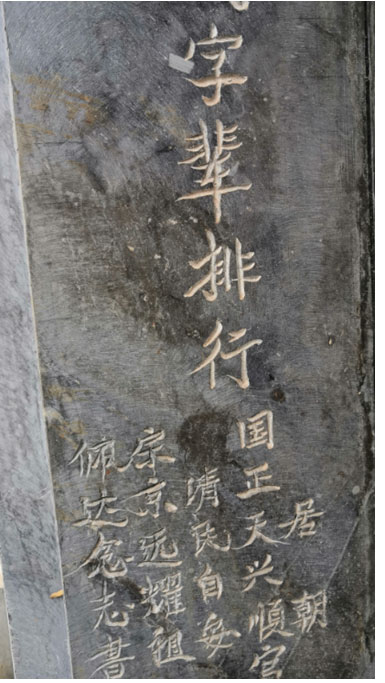 字辈排行
居朝
国正天兴顺官
清民自安
宗京远耀祖
佩达念志書